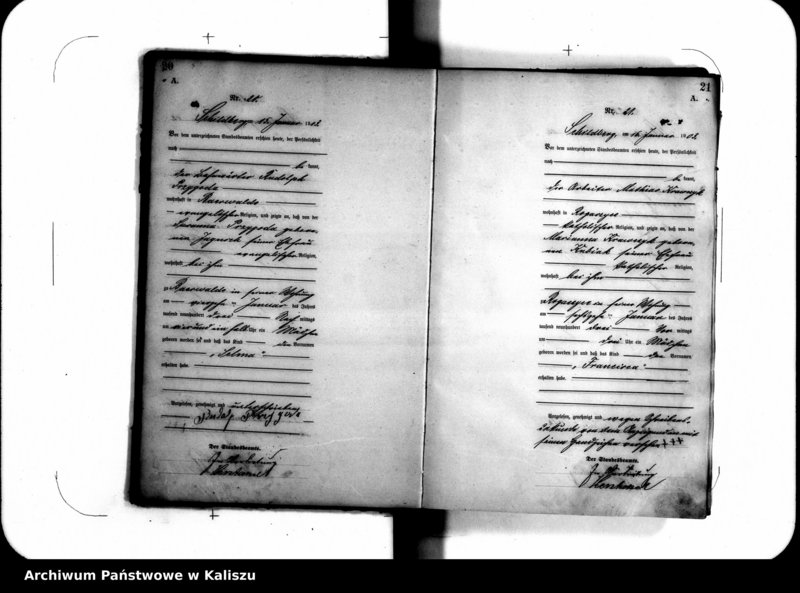 20
A.
Nr. 20.
Schildberg, am 15. Januar 1902
Vor dem unterzeichneten Standesbeamten erschien heute, der Persönlichkeit
nach
be kannt,
der
Rudolph
Przygoda
wohnhaft in
evangelischer Religion, und zeigte an, daß von der
Susanna Przygoda geboren
seiner Ehefrau
evangelischer Religion,
wohnhaft bei ihm
zu in seiner Wohnung
am Januar des Jahres
tausend neunhundert zwei Nach mittags
um ein halb Uhr ein Mädchen
geboren worden sei und daß das Kind den Vornamen
"Selma"
erhalten habe.
Vorgelesen, genehmigt und unterschrieben
Der Standesbeamte.
In Vertretung
21
A.
Nr. 21.
Schildberg, am 16. Januar 1902
Vor dem unterzeichneten Standesbeamten erschien heute, der Persönlichkeit
nach
be kannt,
der Arbeiter Mathias Krawczyk
wohnhaft in
katholischer Religion, und zeigte an, daß von der
Marianna Krawczyk geboren
Kubiak seiner Ehefrau
katholischer Religion,
wohnhaft bei ihm
zu in seiner Wohnung
am Januar des Jahres
tausend neunhundert zwei Vor mittags
um drei Uhr ein Mädchen
geboren worden sei und daß das Kind den Vornamen
"Francisca"
erhalten habe.
Vorgelesen, genehmigt und wegen Schreibens-
unkunde von dem Anzeigenden mit
seinem Handzeichen versehen +++
Der Standesbeamte.
In Vertretung
Archiwum Państwowe w Kaliszu